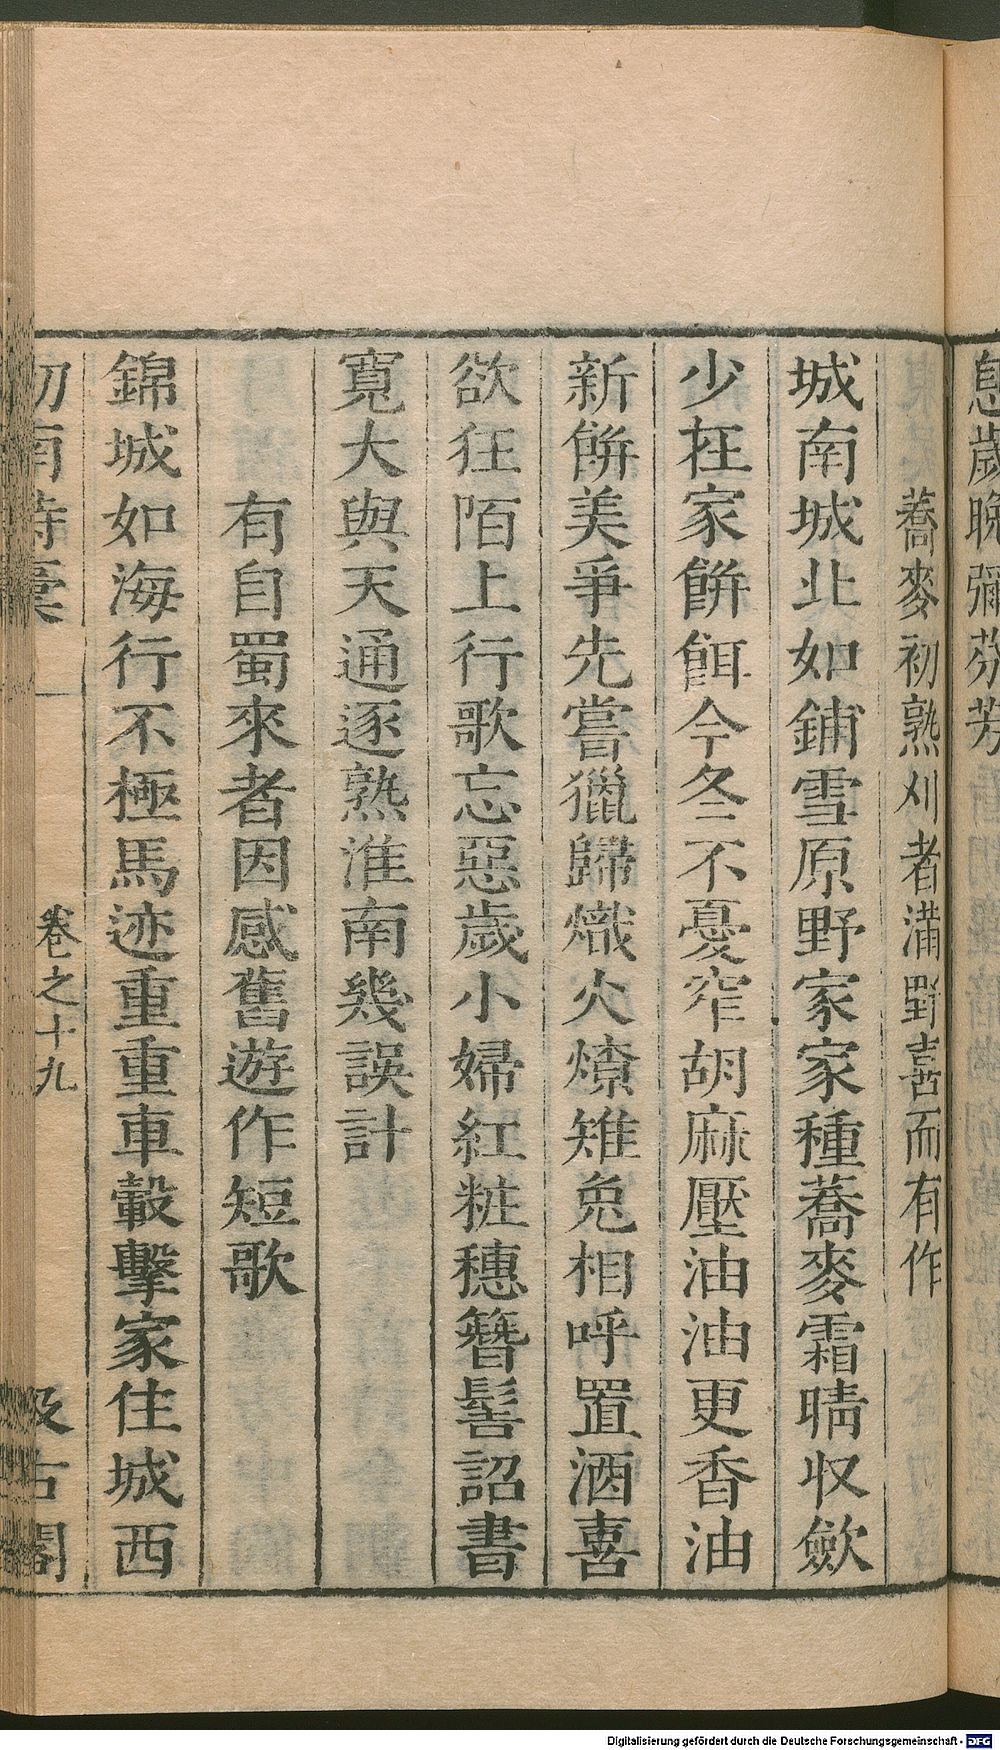 息歲晚彌芬芳
蕎麥初熟刈者滿野喜而有作
城南城北如鋪雪原野家家種蕎麥霜晴収斂
少在家餅餌今冬不憂窄胡麻壓油油更香油
新餅美爭先嘗獵歸熾火燎雉兔相呼置酒喜
欲狂陌上行歌忘惡歲小婦紅粧穗簪髻詔書
寬大與天通逐熟淮南幾誤計
有自蜀來者因感舊遊作短歌
錦城如海行不極馬迹重重車轂擊家住城西
劒南詩稾 卷之十九 汲古閣
Digitalisierung gefördert durch die Deutsche Forschungsgemeinschaft - DFG